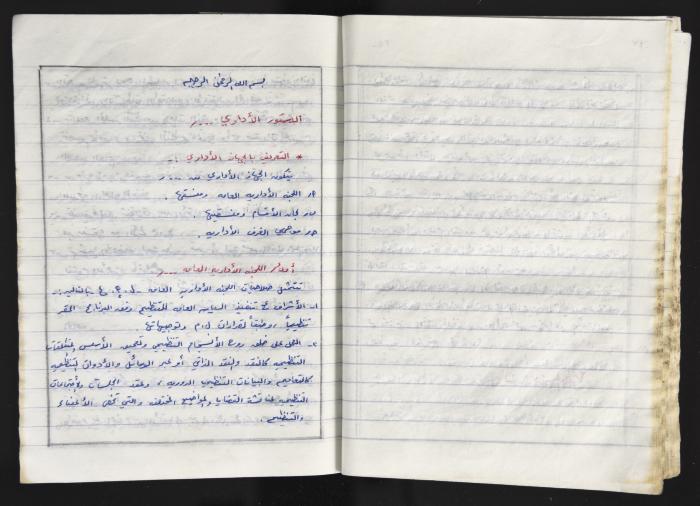 بسم الله الرحمن الرحيم
الدستور الأداري ...
* التعريف بالجهاز الأداري :-
يتكون الجهاز الأداري من ...
أ- اللجنة الأدارية العامة ومنسقها .
ب- لجان الأقسام ومنسقيها
ج- موجهي الغرف الأدارية .
أولاً : اللجنة الأدارية العامة ...
تتمثل صلاحيات اللجنة الأدارية العامة بالتالي :-
١- الأشراف على تنفيذ السياسة العامة للتنظيم وفقد البرنامج المقر
تنظيمياً ووفقاً لقرارات وتوجيهاتها .
٢- العمل على خلق روح الأنسجام التنظيمي وتعميق الأسس
التنظيمي كالنقد والنقد الذاتي أو عبر الوسائل والأدوات التنظيمية
كالتعاميم والبيانات التنظيمية الدورية ، وعقد الجلسات والإجتماعات
التنظيمية لمناقشة القضايا والمواضيع المختلفة والتي تخص الأعضاء
والتنظيم .